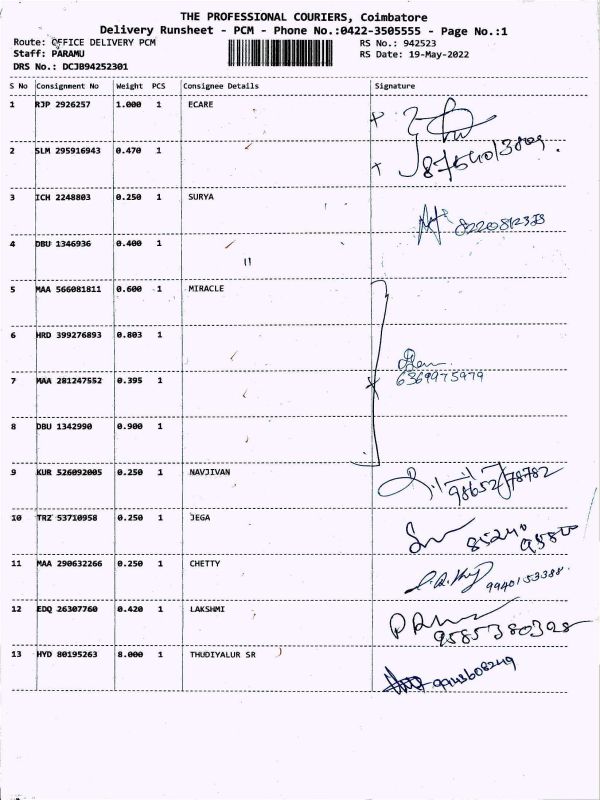 THE PROFESSIONAL COURIERS, Coimbatore
Delivery Runsheet - PCM - Phone No.:0422-3505555 - Page No.:1
Route: OFFICE DELIVERY PCM RS No.: 942523
Staff: PARAMU RS Date: 19-May-2022
DRS No.: DCJB94252301
S No Consignment No Weight PCS Consignee Details Signature
1 RJP 2926257 1.000 1 ECARE
2 SLM 295916943 0.470 1
3 ICH 2248803 0.250 1 SURYA
4 DBU 1346936 0.400 1
"
5 MAA 566081811 0.600 1 MIRACLE
6 HRD 399276893 0.803 1
7 MAA 281247552 0.395 1 6369975979
8 DBU 1342990 0.900 1
9 KUR 526092005 0.250 1 NAVJIVAN 9865278782
10 TRZ 53710958 0.250 1 JEGA
11 MAA 290632266 0.250 1 CHETTY 9940153388
12 EDQ 26307760 0.420 1 LAKSHMI 9585380328
13 HYD 80195263 8.000 1 THUDIYALUR SR 9943608249